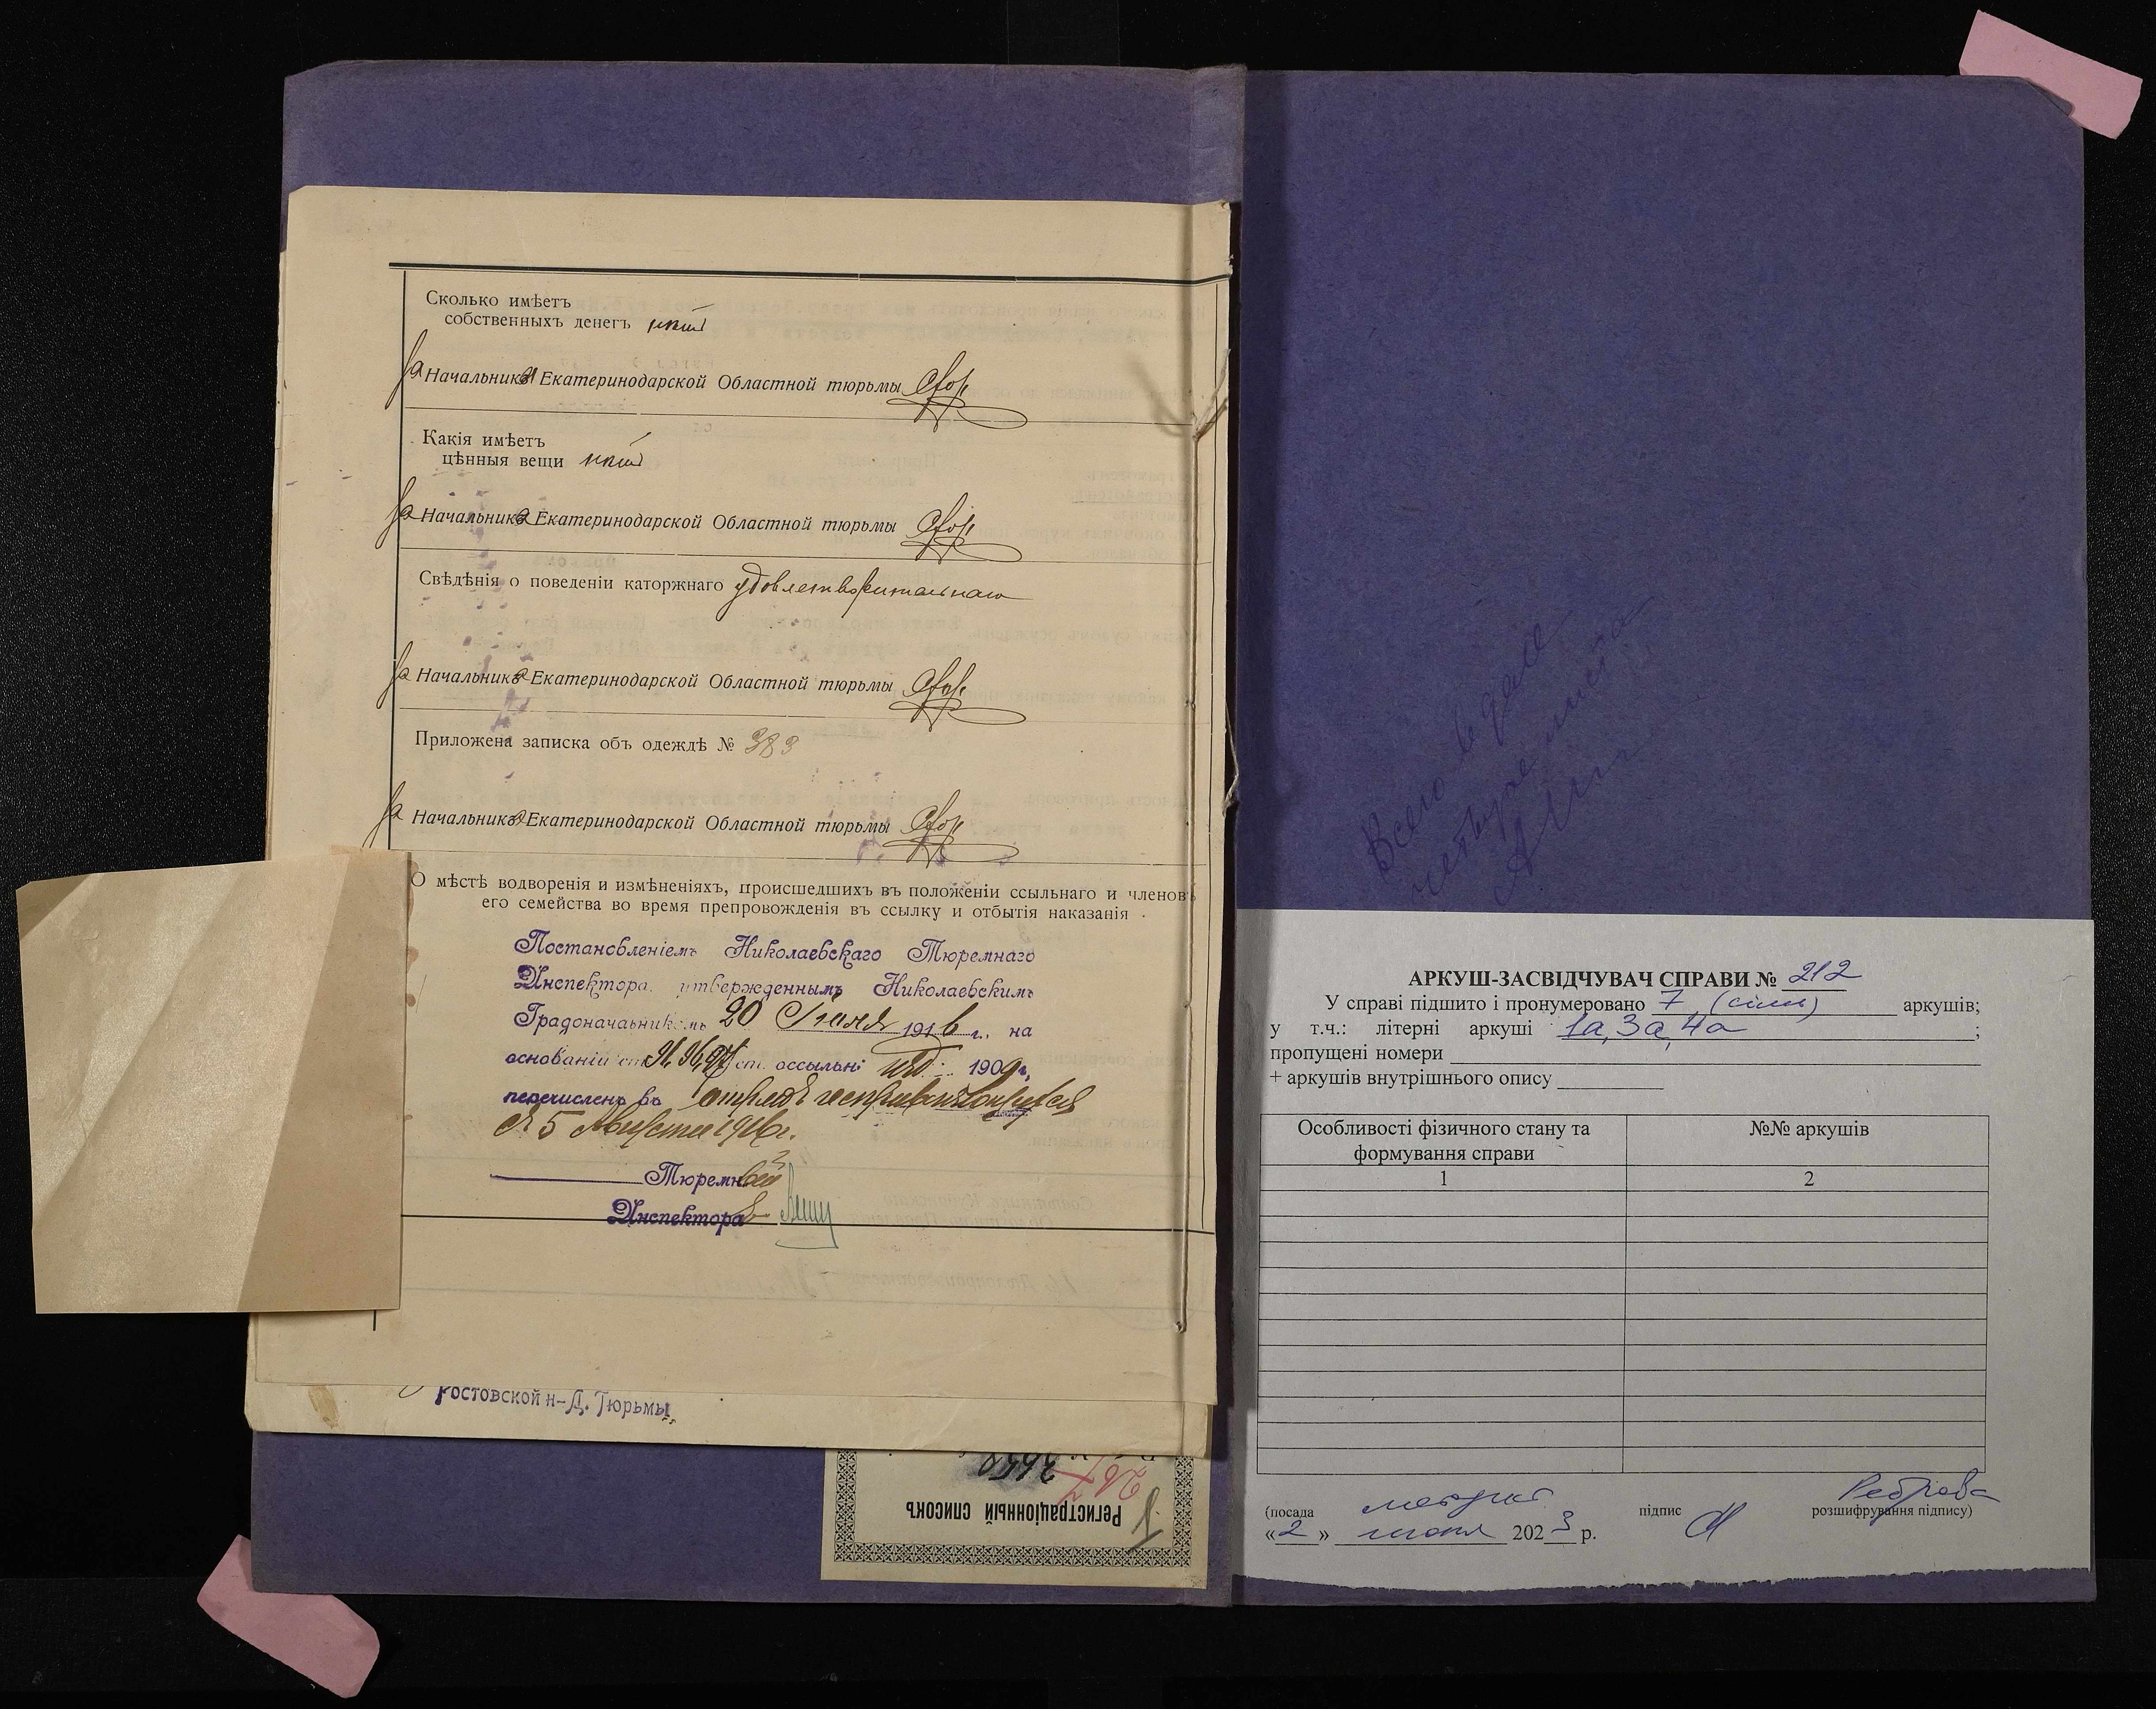 Сколько имѣетъ
собственныхъ денегъ нѣтъ
За Начальника Екатеринодарской Областной тюрьмы
Какія имѣетъ
цѣнныя вещи нѣтъ
За Начальника Екатеринодарской Областной тюрьмы
Свѣдѣнія о поведеніи каторжнаго удовлетворительнаго
За Начальника Екатеринодарской Областной тюрьмы
Приложена записка объ одеждѣ № 383
За Начальника Екатеринодарской Областной тюрьмы
О мѣстѣ водворенія и измѣненіяхъ, происшедшихъ въ положеніи ссыльнаго и членовъ
его семейства во время препровожденія въ ссылку и отбытія наказанія
Постановленіемъ Николаевскаго Тюремнаго
Инспектора, утвержденнымъ Николаевскимъ
Градоначальникомъ 20 1916 г., на
основаніи ст. ст. о ссыльн: изд. 1909 г.
перечисленъ въ отрядъ исправляющихся
5 Августа 1916 г.
Тюремн
Инспектора
Ростовской н-Д. Тюрьмы
3658
Регистраціонный списокъ
Всего в деле
четыре листа
АРКУШ-ЗАСВІДЧУВАЧ СПРАВИ № 212
У справі підшито і пронумеровано 7 (сім) аркушів;
у т.ч.: літерні аркуші 1а, 3а, 4а ;
пропущені номери
+ аркушів внутрішнього опису
Особливості фізичного стану та формування справи
№№ аркушів
1 2
(посада підпис Реброва розшифрування підпису)
«2» 2023 р.